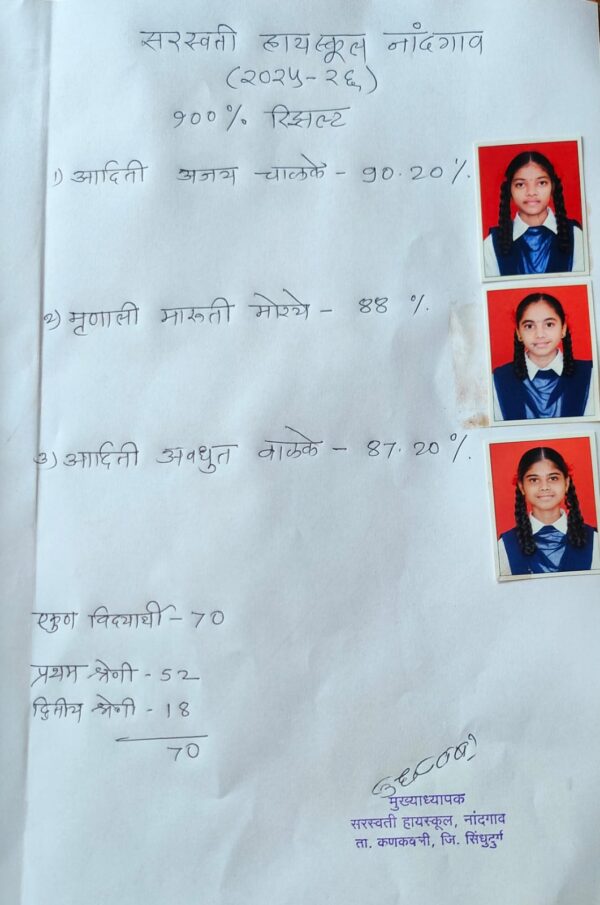 सरस्वती हायस्कूल नांदगाव
(२०२५-२६)
१००% रिझल्ट
१) आदिती अजय चाळके - 90.20%.
२) मृणाली मारुती मोरये - 88 %.
३) आदिती अवधुत चाळके - 87.20%.
एकुण विद्यार्थी - 70
प्रथम श्रेणी - 52
द्वितीय श्रेणी - 18
70
मुख्याध्यापक
सरस्वती हायस्कूल, नांदगाव
ता. कणकवली, जि. सिंधुदुर्ग